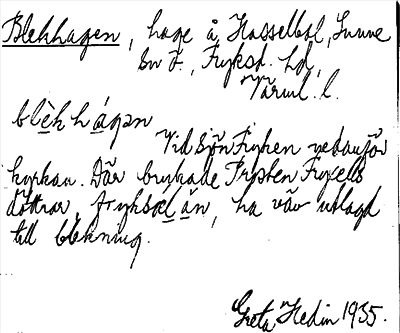 Blekhagen, hage å Hasselbol, Sunne
Sn ., Fryksd. hd,
Värml. l.
blèkhágan
Vid sjön Fryken nedanför
kyrkan. Där brukade Prosten Fryxells
döttrar, ha väv utlagd
till blekning.
Greta Hedin 1935.